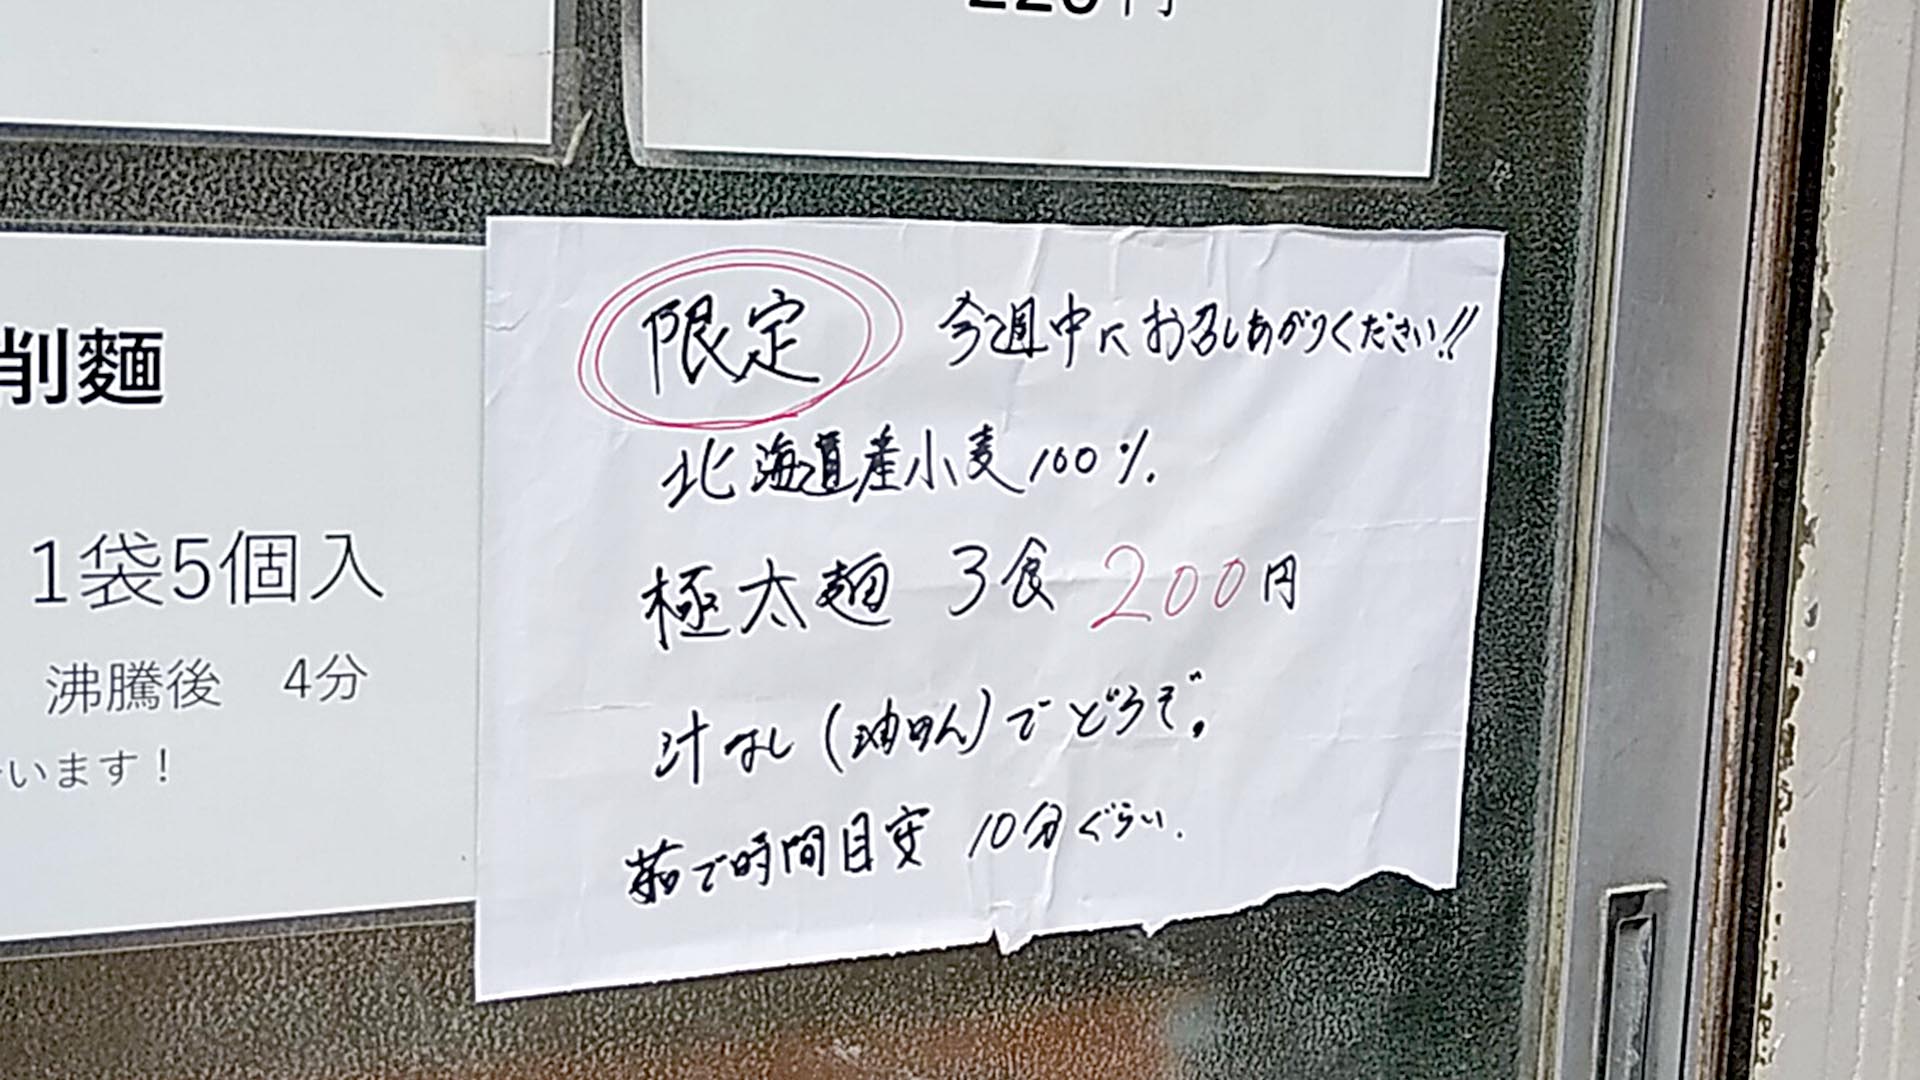 円
削麺
1袋5個入
沸騰後 4分
います!
限定 今週中にお召しあがりください!!
北海道産小麦100%
極太麺 3食 200円
汁なし(油めん)でどうぞ。
茹で時間目安 10分ぐらい.